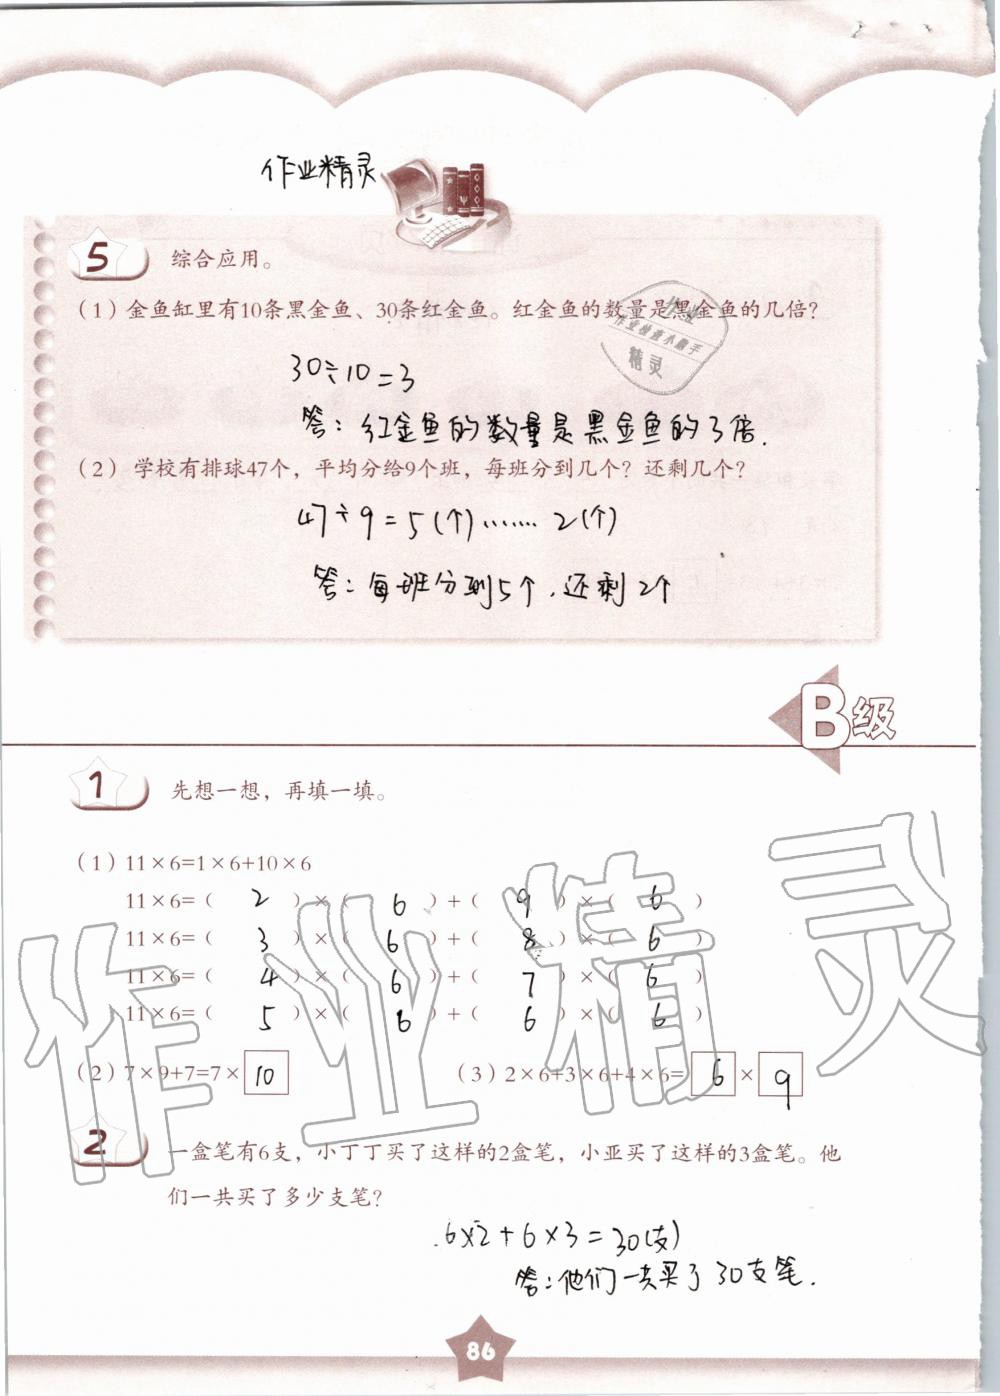 作业精灵
5 综合应用。
(1) 金鱼缸里有10条黑金鱼、30条红金鱼。红金鱼的数量是黑金鱼的几倍?
作业检查小助手
精灵
30÷10=3
答:红金鱼的数量是黑金鱼的3倍.
(2) 学校有排球47个,平均分给9个班,每班分到几个?还剩几个?
47÷9=5(个)……2(个)
答:每班分到5个.还剩2个
B级
1 先想一想,再填一填。
(1) 11×6=1×6+10×6
11×6=( 2 )×( 6 )+( 9 )×( 6 )
11×6=( 3 )×( 6 )+( 8 )×( 6 )
11×6=( 4 )×( 6 )+( 7 )×( 6 )
11×6=( 5 )×( 6 )+( 6 )×( 6 )
作业精灵
(2) 7×9+7=7×10 (3) 2×6+3×6+4×6=6×9
2 一盒笔有6支,小丁丁买了这样的2盒笔,小亚买了这样的3盒笔。他
们一共买了多少支笔?
6×2+6×3=30(支)
答:他们一共买了30支笔.
86